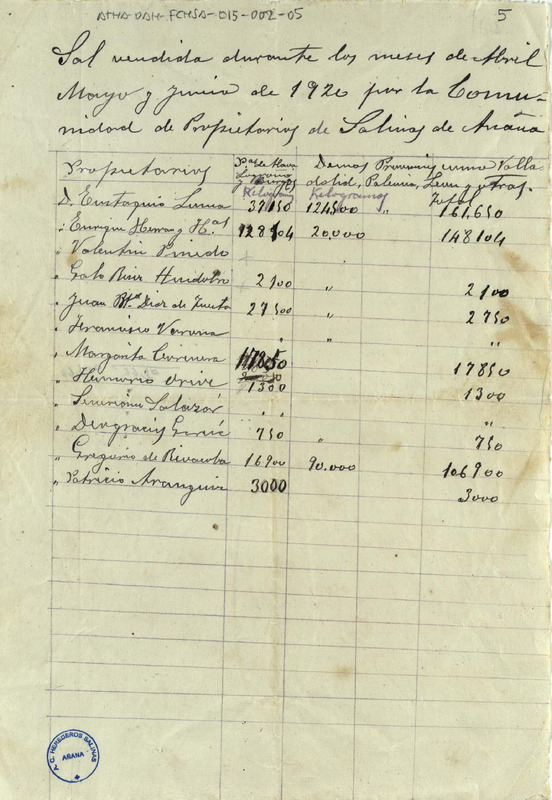 ATHA-DAH-FCHSA-015-002-05
5
Sal vendida durante los meses de Abril
Mayo y Junio de 1920 por la Comu-
nidad de Propietarios de Salinas de Añana
Propietarios Pcas de Alava Demas Provincias como Valla
Logroño y Burgos dolid, Palencia, Leon y otras.
Kilogramos Kilogramos total
D. Eustaquio Luna 37150 124,500 " 161,650
" Enrique Herran y H.as 128104 20.000 148104
" Valentin Pinedo
" Galo 2100 " 2100
" Juan Bta Diaz de Tuesta 27500 " 2750
" Francisco Varona " " "
" Margarita 17850 17850
" Honorio Orive 1300 1300
" Severiano Salazar " " "
" Deogracias 750 " 750
" Gregorio de Rivacoba 16900 90.000 106900
" Patricio Aranguiz 3000 3000
A.C. HEREDEROS SALINAS
AÑANA